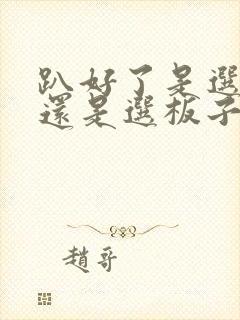 趴好了是選
還是選板子
趙哥